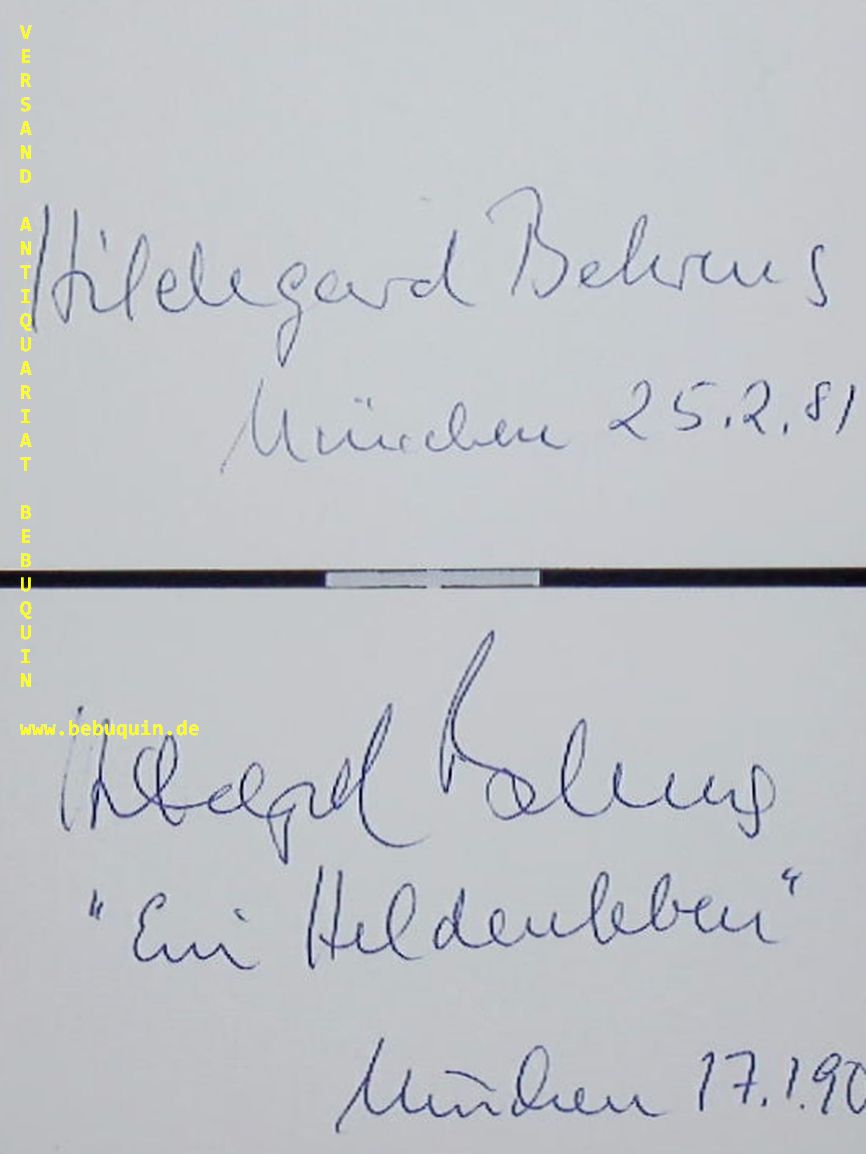 VERSAND ANTIQUARIAT BEBUQUIN
www.bebuquin.de
Hildegard Behrens
München 25.2.81
Hildegard Behrens
"Ein Heldenleben"
München 17.1.90